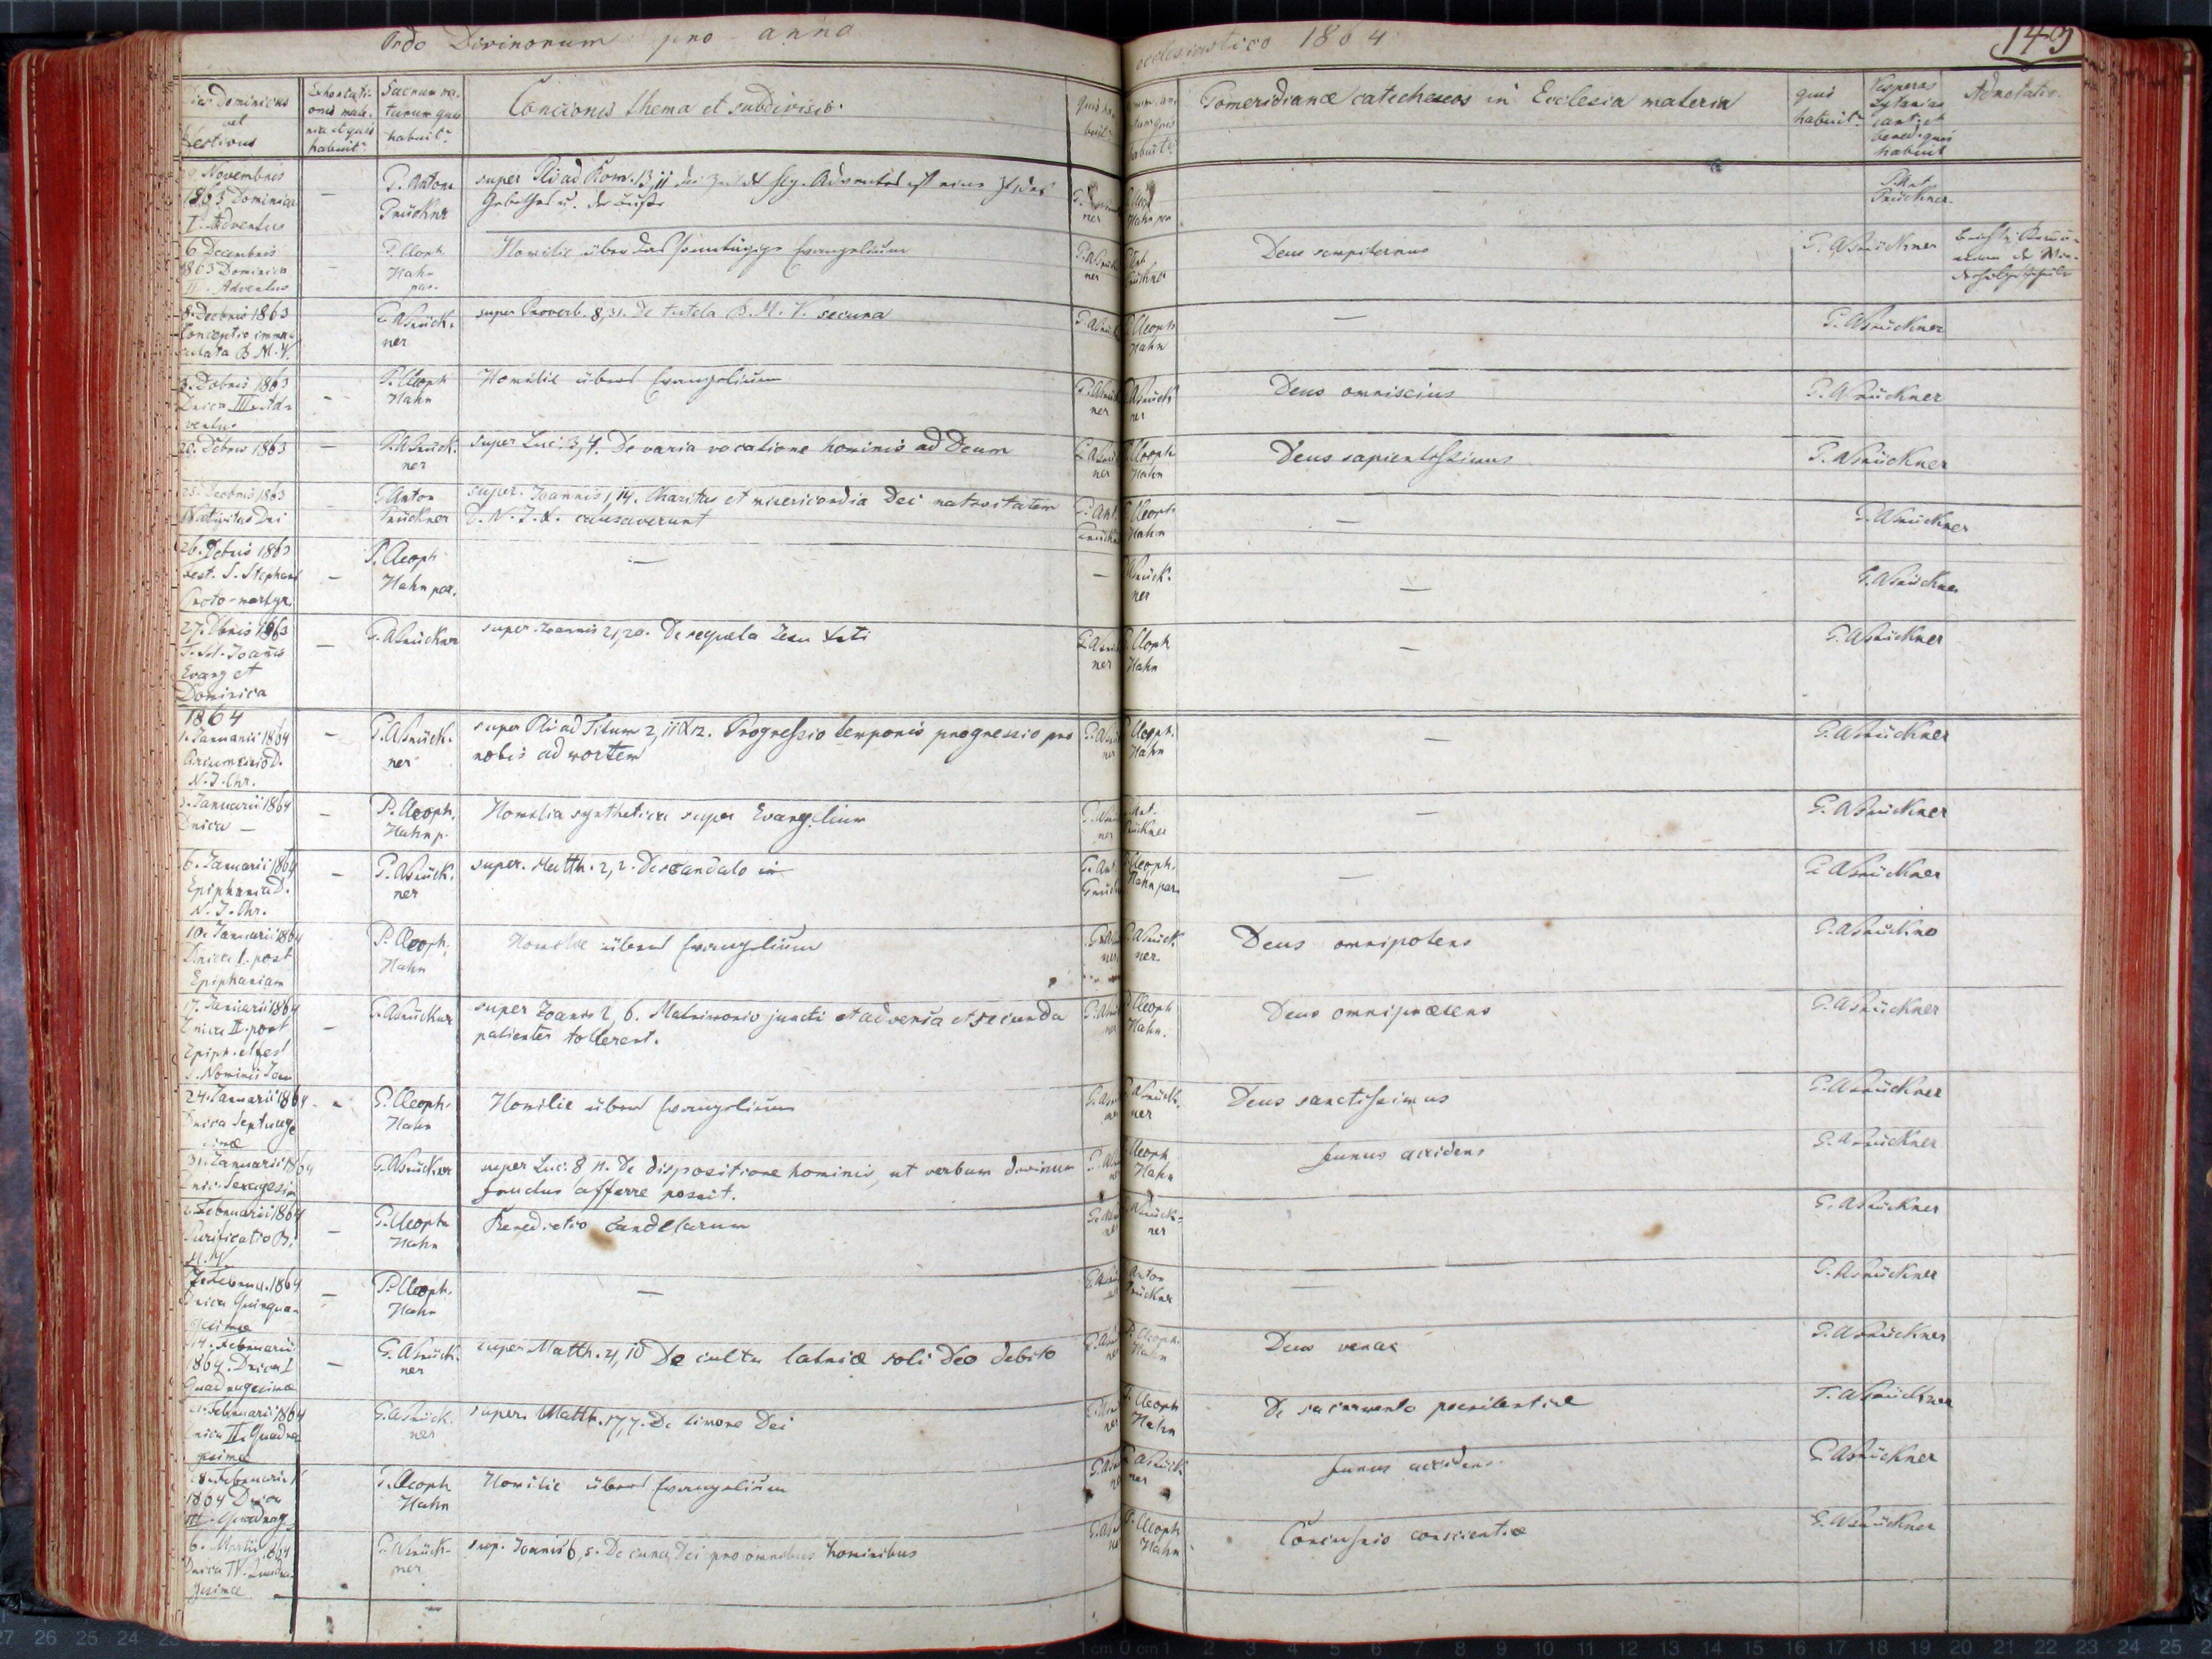 Ordo Divinorum pro anno ecclesiastico 1864
149
Dies Dominicus
vel
festivus
Exhortati-
onis mate-
ria et quis
habuit?
Sacrum ma-
tutinum quis
habuit?
Concionis thema et subdivisio.
quis ha-
buit?
quis
habuit?
Pomeridianæ catecheseos in Ecclesia materia
quis
habuit?
Vesperas
Lytanias
cant. et
bened. quis
habuit
Adnotatio.
Novembris
1863 Dominica
I. Adventus
—
P. Anton
Prückner
super Pli ad Rom. 13, 11
Gebethes u. der Buße
Hahn par
—
P. Ant.
Prückner
6 Decembris
1863 Dominica
II. Adventus
—
P. Cleoph
Hahn
par.
Homilie über das sonntägige Evangelium
P. A Prück
ner
Deus sempiternus
P. A Prückner
8. Decbris 1863
Conceptio imma-
culata B. M. V.
P. A Prück-
ner
super Proverb. 8, 31. De tutela B. M. V. secura
P. Cleoph
Hahn
—
P. A Prückner
Dcbris 1863
Dnica III. Ad-
ventus
-
P. Cleoph
Hahn
Homilie übers Evangelium
P. A Prück
ner
A Prück
ner
Deus omniscius
P. A Prückner
20. Dcbris 1863
—
P. A Prück-
ner
super Luc. 3, 4. De varia vocatione hominis ad Deum
P. Cleoph
Hahn
Deus sapientissimus
P. A Prückner
25. Decbris 1863
Nativitas Dni
-
P. Anton
Prückner
super. Joannis 1, 14. Charitas et misericordia Dei nativitatem
D. N. J. X. causaverunt
P. Ant.
Prückn
P. Cleoph
Hahn
—
P. A Prückner
26. Dcbris 1863
Fest. S. Stephani
Proto-martyr.
-
P. Cleoph
Hahn par.
—
—
A Prück-
ner
—
P. A Prückner
27. Dbris 1863
F. St. Joanis
Evang et
Dominica
—
P. A Prückner
super. Joannis 21, 20. De sequela Jesu Xsti
P. Cleoph
Hahn
-
P. A Prückner
1864
1. Januarii 1864
Circumcisio D.
N. J. Chr.
-
P. A Prück-
ner
super Pli ad Titum 2, 11 & 12. Progressio temporis progressio pro
nobis ad mortem
P. Cleoph.
Hahn
—
P. A Prückner
3. Januarii 1864
Dnica —
-
P. Cleoph.
Hahn p.
Homilia synthetica super Evangelium
P. Ant.
Prückner
—
P. A Prückner
6. Januarii 1864
Epiphania D.
N. J. Chr.
-
P. A Prück.
ner
super. Matth. 2, 2. De scandalo in
P. Ant
Prück
P. Cleoph.
Hahn par.
—
P. A Prückner
10. Januarii 1864
Dnica I. post
Epiphaniam
P. Cleoph.
Hahn
Homilie übers Evangelium
A Prück
ner.
Deus omnipotens
17. Januarii 1864
Dnica II. post
Epiph. et fest
S. Nominis Jesu
—
P. A Prückner
super Joannis 2, 6. Matrimonio juncti et adversa et secunda
patienter tollerent.
P. Cleoph
Hahn.
Deus omnipræsens
P. A Prückner
24. Januarii 1864
Dnica Septuage
simæ
-
P. Cleoph.
Hahn
Homilie übers Evangelium
A Prück.
ner
Deus sanctissimus
P. A Prückner
31. Januarii 1864
Dnic. Sexagesim
P. A Prückner
super Luc. 8, 11. De dispositione hominis, ut verbum divinum
fructus afferre possit.
Cleoph
Hahn
funus accidens
P. A Prückner
2. Februarii 1864
Purificatio B.
M. V.
—
P. Cleoph
Hahn
Benedictio candelarum
A Prück-
ner
—
P. A Prückner
7. Februa. 1864
Dnica Quinqua-
gesimæ
—
P. Cleoph.
Hahn
—
Anton
Prückner
—
P. A Prückner
14. Februarii
1864. Dnica I
Quadragesimæ
—
P. A Prück-
ner
super Matth. 4, 10 De cultu latriæ soli Deo debito
P. Cleoph.
Hahn
Deus verax
P. A Prückner
Februarii 1864
Dnica II. Quadra
gesimæ
P. A Prück-
ner
super. Matth. 17, 7. De timore Dei
P. Cleoph
Hahn
De sacramento poenitentiæ
P. A Prückner
28. Februarii
1864 Dnica
III. Quadrag.
P. Cleoph
Hahn
Homilie übers Evangelium
A Prück
ner
funus accidens
P. A Prückner
6. Martii 1864
Dnica IV. Quadra-
gesimæ
P. A Prück-
ner
sup. Joannis 6, 5. De cura Dei pro omnibus hominibus
P. Cleoph
Hahn
conscientiæ
P. A Prückner